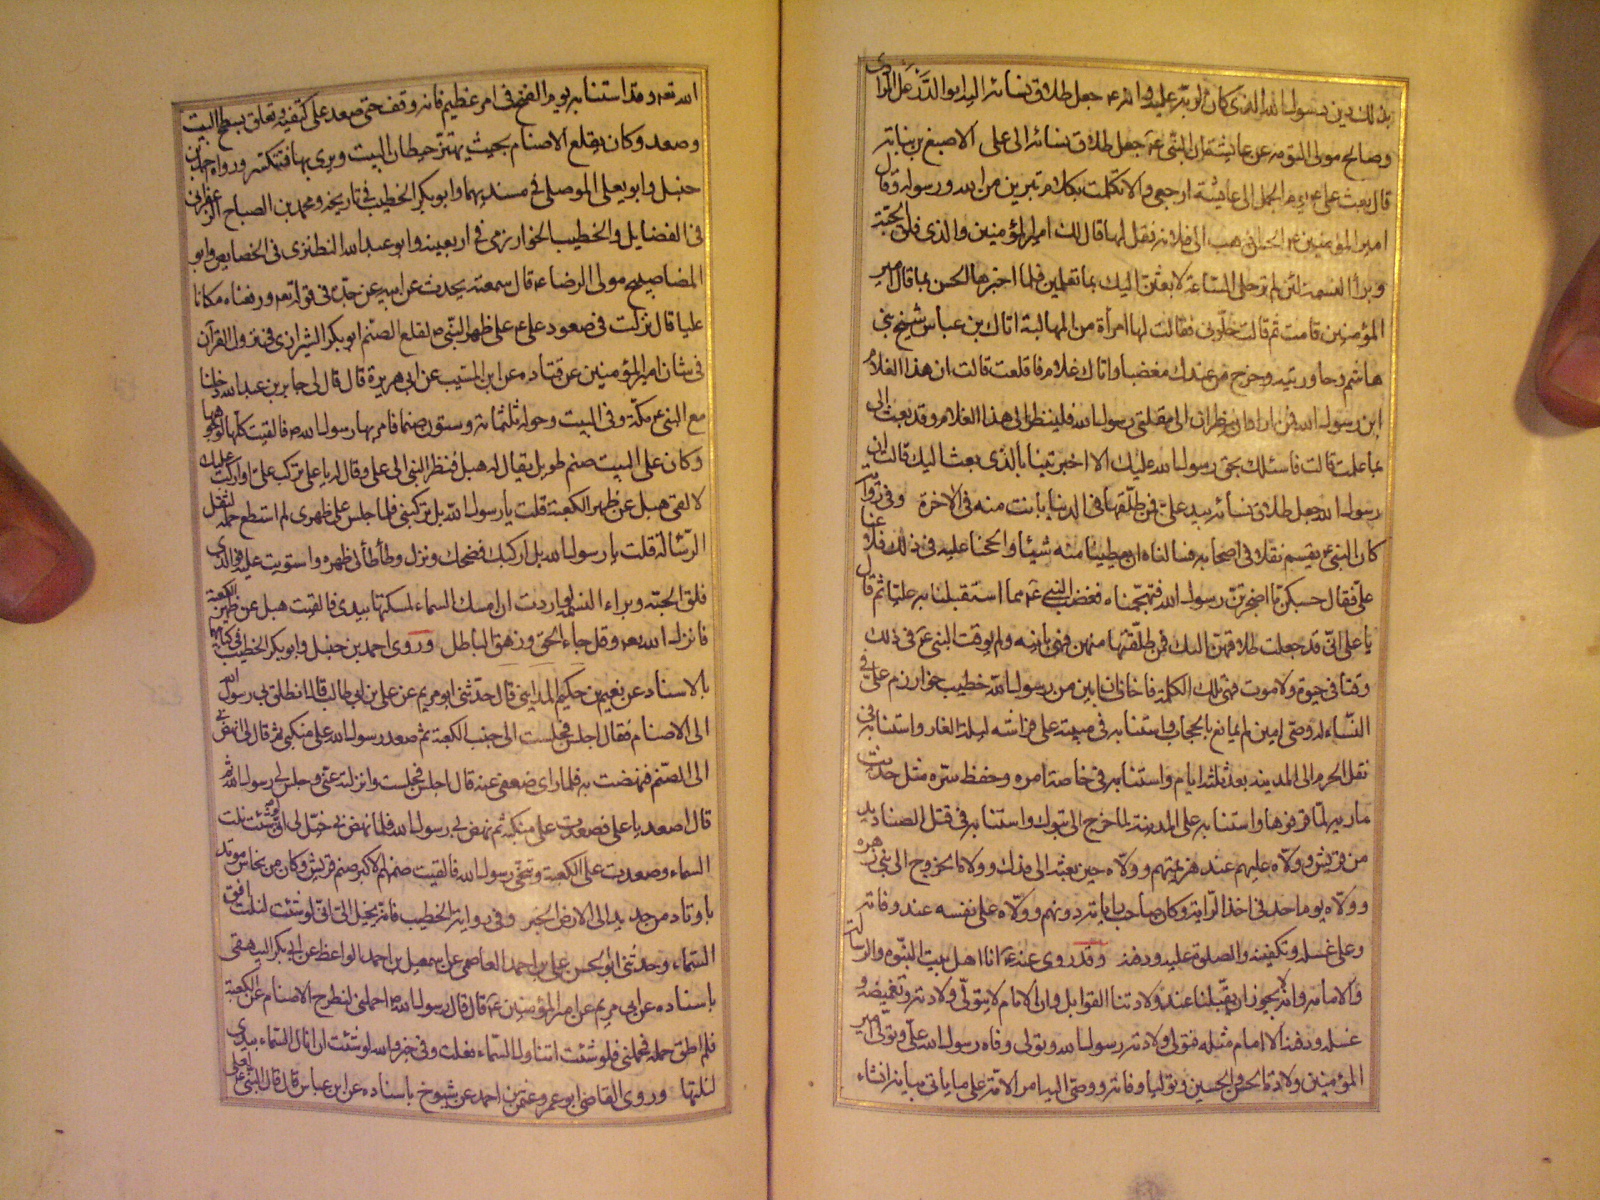 بذلك دين رسول الله الذى كان لربه عليه وانه ع جعل طلاق نسائه اليه ابو الدر على المرادى
وصالح مولى التومة عن عايشة ان النبى ع جعل طلاق نسائه الى على الاصبغ بن نباته
قال بعث على ع يوم الجمل الى عايشة ارجعى والا تكلمت بكلام تبرين من الله ورسوله وقال
امير المؤمنين ع للحسن اذهب الى فلانة فقل لها قال لك امير المؤمنين والذى فلق الحبة
وبرأ النسمة لئن لم ترحلى الساعة لابعثن اليك بما تعلمين فلما اخبرها الحسن بما قال امير
المؤمنين قامت ثم قالت خلونى فقالت لها امرأة من المهالبة اتاك ابن عباس شيخ بنى
هاشم وحاورتيه وخرج من عندك مغضبا واتاك غلام فاقلعت قالت ان هذا الغلام
ابن رسول الله فمن اراد ان ينظر الى مقلتى رسول الله فلينظر الى هذا الغلام وقد بعث الى
بما علمت قالت فاسئلك بحق رسول الله عليك الا اخبرتينا بالذى بعث اليك قالت ان
رسول الله جعل طلاق نسائه بيد على فمن طلقها فى الدنيا بانت منه فى الاخرة وفى رواية
كان النبى ع يقسم نفلا فى اصحابه فسالناه ان يعطينا منه شيئا والححنا عليه فى ذلك فلامنا
على فقال حسبكن ما اضجرتن رسول الله فتهجمناه فغضب النبى ع مما استقبلنا به عليا ثم قال
يا على انى قد جعلت طلاقهن اليك فمن طلقتها منهن فهى باينة ولم يوقت النبى ع فى ذلك
وقتا فى حيوة ولا موت فهى تلك الكلمة فاخاف ان ابين من رسول الله خطيب خوارزم على فى
النساء له وصى امين لم يمانع بالحجاب واستنابه فى مبيته على فراشه ليلة الغار واستنابه فى
نقل الحرم الى المدينة بعد ثلثة ايام واستنابه فى خاصة امره وحفظ سره مثل حديث
مارية لما قرفوها واستنابه على المدينة لما خرج الى تبوك واستنابه فى قتل الصناديد
من قريش وولاه عليهم عند هزيمتهم وولاه حين بعثه الى فدك وولاه الخروج الى بنى زهره
وولاه يوم احد فى اخذ الراية وكان صاحب رايته دونهم وولاه على نفسه عند وفاته
وعلى غسله وتكفينه والصلوة عليه ودفنه وقد روى عنه ع انا اهل بيت النبوه والرسالة
والامامه وانه لا يجوز ان يقبلنا عند ولادتنا القوابل وان الامام لا يتولى ولادته وتغميضه و
غسله ودفنه الا امام مثله فتولى ولادته رسول الله وتولى وفاة رسول الله على وتولى امير
المؤمنين ولادة الحسن والحسين وتوليا وفاته ووصى اليه امر الامة على ما ياتى بيانه انشاء
الله تعه وقد استنابه يوم الفتح فى امر عظيم فانه وقف حتى صعد على كتفيه وتعلق بسطح البيت
وصعد وكان يقلع الاصنام بحيث يهتز حيطان البيت ويرى بها فتنكسر ورواه احمد بن
حنبل وابو يعلى الموصلى فى مسنديهما وابو بكر الخطيب فى تاريخه ومحمد بن الصباح الزعفرانى
فى الفضايل والخطيب الخوارزمى فى اربعينه وابو عبد الله النطنزى فى الخصايص وابو
المضا صبيح مولى الرضا ع قال سمعته يحدث عن ابيه عن جده فى قوله تعه ورفعناه مكانا
عليا قال نزلت فى صعود على ع على ظهر النبى ص لقلع الصنم ابو بكر الشيرازى فى نزول القرآن
فى شان امير المؤمنين عن قتاده عن ابن المسيب عن ابى هريرة قال قال لى جابر بن عبد الله دخلنا
مع النبى ع مكة وفى البيت وحوله ثلثمائة وستون صنما فامر بها رسول الله ص فالقيت كلها لوجوهها
وكان على البيت صنم طويل يقال له هبل فنظر النبى الى على وقال له يا على تركب على او اركب عليك
لالقى هبل عن ظهر الكعبة قلت يا رسول الله بل تركبنى فلما جلس على ظهرى لم استطع حمله لثقل
الرسالة قلت يا رسول الله بل اركبك فضحك ونزل وطأطأ لى ظهره واستويت عليه فوالذى
فلق الحبه وبراء النسمة لو اردت ان امسك السماء لمسكتها بيدى فالقيت هبل عن ظهر الكعبة
فانزل الله تعه وقل جاء الحق وزهق الباطل وروى احمد بن حنبل وابو بكر الخطيب فى كتابيهما
بالاسناد عن نعيم بن حكيم المداينى قال حدثنى ابو مريم عن على بن ابى طالب قال انطلق بى رسول الله
الى الاصنام فقال اجلس فجلست الى جنب الكعبة ثم صعد رسول الله على منكبى ثم قال لى انهض بى
الى الصنم فنهضت به فلما راى ضعفى عنه قال اجلس فجلست وانزلته عنى وجلس لى رسول الله ثم
قال اصعد يا على فصعدت على منكبه ثم نهض بى رسول الله فلما نهض بى خيل لى انى لو شئت نلت
السماء وصعدت على الكعبة وتنحى رسول الله فالقيت صنمهم الاكبر صنم قريش وكان من نحاس موتد
باوتاد من حديد الى الارض الخبر وفى رواية الخطيب فانه يخيل الى انى لو شئت لنلت افق
السماء وحدثنى ابو الحسن على بن احمد العاصمى عن اسمعيل بن احمد الواعظ عن ابى بكر البيهقى
باسناده عن ابى مريم عن امير المؤمنين ع قال قال رسول الله ص احملنى لنطرح الاصنام عن الكعبة
فلم اطق حمله فحملنى فلو شئت اتناول السماء فعلت وفى خبر والله لو شئت ان انال السماء بيدى
لنلتها وروى القاضى ابو عمرو عثمن بن احمد عن شيوخ باسناده عن ابن عباس قال قال النبى ع لعلى